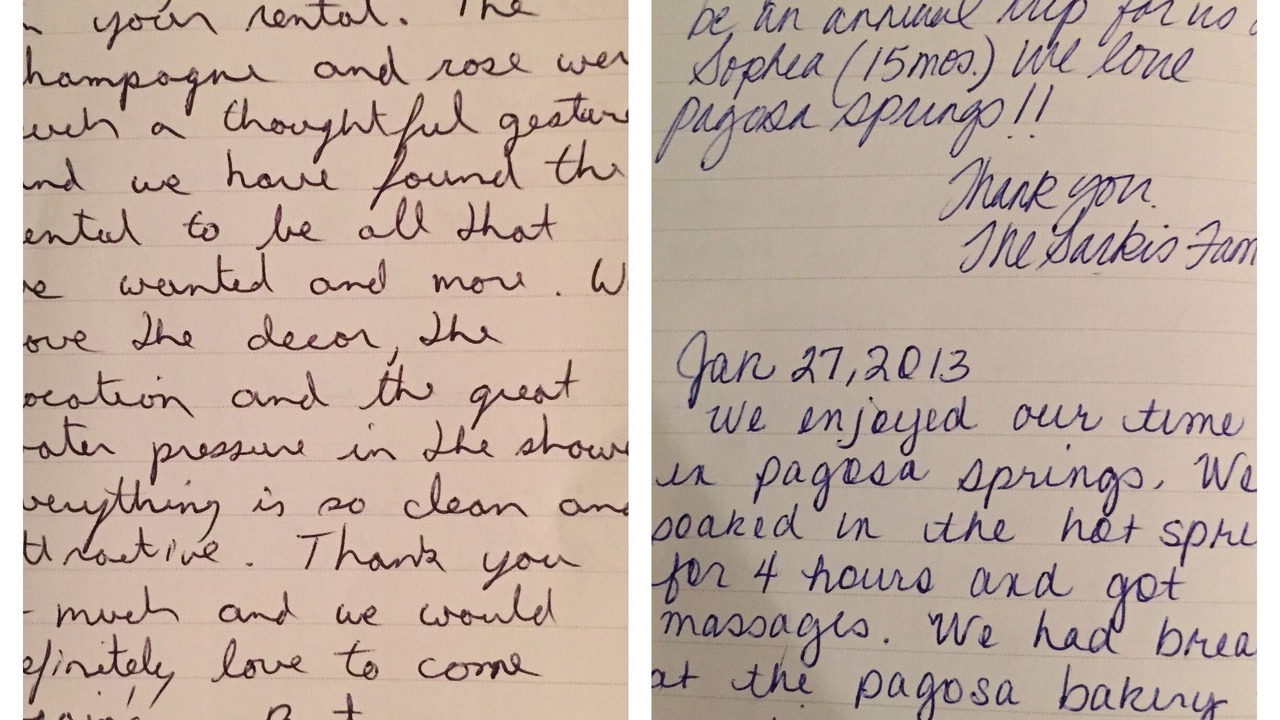 your rental. The
hampagne and rose wer
uch a thoughtful gesture
nd we have found the
ental to be all that
e wanted and more. W
ove the decor, the
ocation and the great
ater pressure in the showe
verything is so clean and
ttractive. Thank you
much and we would
efinitely love to come
be an annual trip for us
Sophea (15mos.) We love
pagosa springs!!
Thank you.
The Sarkis Fam
Jan 27, 2013
We enjoyed our time
in pagosa springs. We
soaked in the hot spri
for 4 hours and got
massages. We had brea
at the pagosa bakery